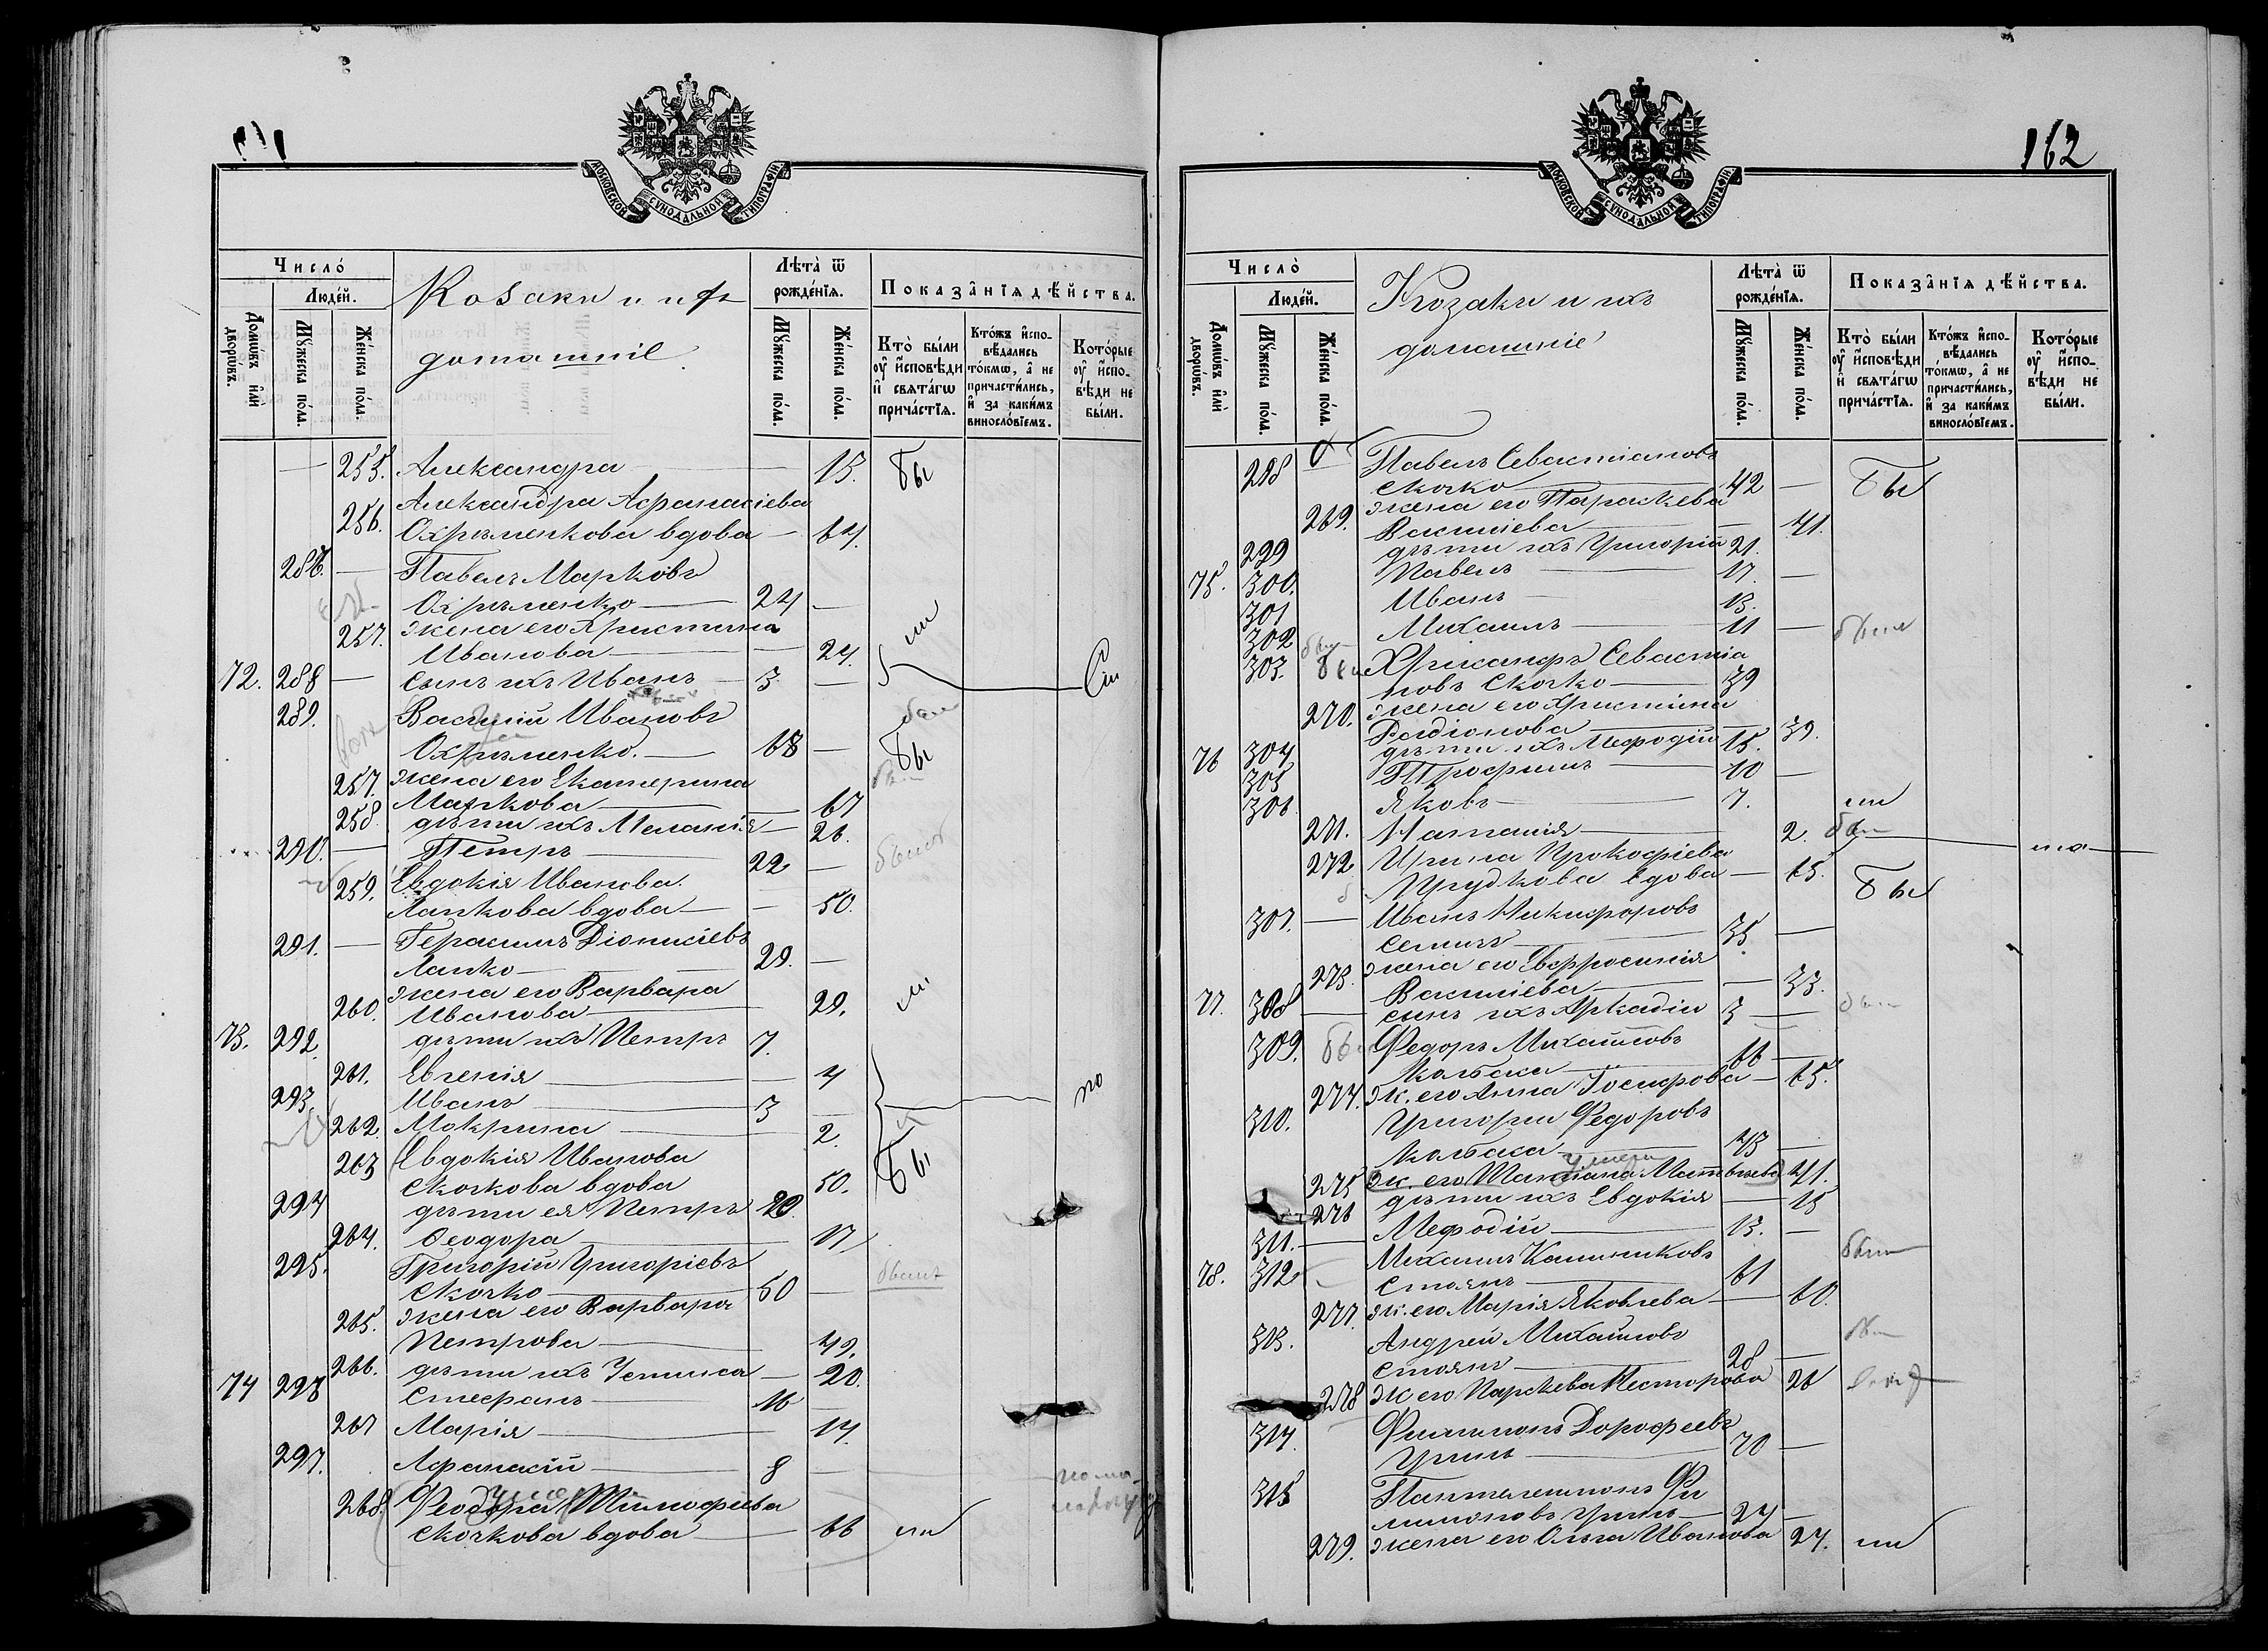 МОСКОВСКОЙ СѴНОДАЛЬНОЙ ТИПОГРАФІИ
Число̀
Люде́й.
Домѡ́въ и҆лѝ дворѡ́въ.
Мꙋ́жеска по́ла.
Же́нска по́ла.
Козаки и ихъ
домашніе
Лѣта̀ ѿ рожде́нїѧ.
Мꙋ́жеска по́ла.
Же́нска по́ла.
Показа̂нїѧ дѣ́йства.
Кто̀ бы́ли ᲂу҆ и҆сповѣ́ди и҆ свѧта́гѡ прича́стїѧ.
Кто́жъ и҆спо-вѣ́дались то́кмѡ, а҆ не причасти́лись, и҆ за каки́мъ виносло́вїемъ.
Кото́рые ᲂу҆ и҆спо-вѣ́ди не бы́ли.
— 255. Александра — 15. бы
256. Александра Афанасіева
Охрѣменкова вдова — 64.
287. — Павелъ Марковъ
Охрѣменко — 24 —
257. жена его Христина
Иванова — 24. ли
72. 288 — сынъ ихъ Иванъ — 3 —
289. Василій Ивановъ
Охрѣменко. — 68 — бы
257. жена его Екатерина
Маркова — 67
258. дѣти ихъ Меланія — 26.
290. — Петръ — 22 —
259. Евдокія Иванова
Лапкова вдова — — 50.
291. — Герасимъ Діонисіевъ
Лапко — 29. —
260. жена его Варвара
Иванова — 29. ли
73. 292. дѣти ихъ Петръ 7.
261. Евгенія — 4
293. Иванъ — 3 — мо
262. Макрина — 2.
263 Евдокія Иванова
Скочкова вдова 50. бы
294 дѣти ея Петръ 20.
264. Феодора — 17
295. Григорій Григоріевъ
Скочко — 50 —
265. жена его Варвара
Петрова — 49.
266. дѣти ихъ Устинья — 20.
74 296 Стефанъ — 16 —
267 Марія — 14.
297. Афанасій — 8 —
268. Феодора Тимофеева
Скочкова вдова — 66 ли
162
МОСКОВСКОЙ СѴНОДАЛЬНОЙ ТИПОГРАФІИ
Число̀
Люде́й.
Домѡ́въ и҆лѝ дворѡ́въ.
Мꙋ́жеска по́ла.
Же́нска по́ла.
Козаки и ихъ
домашніе
Лѣта̀ ѿ рожде́нїѧ.
Мꙋ́жеска по́ла.
Же́нска по́ла.
Показа̂нїѧ дѣ́йства.
Кто̀ бы́ли ᲂу҆ и҆сповѣ́ди и҆ свѧта́гѡ прича́стїѧ.
Кто́жъ и҆спо-вѣ́дались то́кмѡ, а҆ не причасти́лись, и҆ за каки́мъ виносло́вїемъ.
Кото́рые ᲂу҆ и҆спо-вѣ́ди не бы́ли.
298 Павелъ Севастіановъ
Скочко — 42 — бы
269. жена его Параскева
Василіева — — 41.
299 дѣти ихъ Григорій 21.
75. 300. Павелъ — 17. —
301 Иванъ — 13.
302 Михаилъ — 11 —
303. Александръ Севастіа
новъ Скочко — 39
270. жена его Христина
Родіонова — — 39.
76 304 дѣти ихъ Мефодій 15.
305 Трофимъ — 10 —
306 Яковъ — 7. ли
271. Наталія — 2.
272. Ирина Прокофіева
Прудкова вдова — 65. бы
307. — Иванъ Никифоровъ
Семизъ — 35 —
273. жена его Евфросинія
Василіева — — 33.
77. 308 — сынъ ихъ Аркадій 3 —
309. Федоръ Михайловъ
Колбаса — 66 —
274. ж. его Анна Іосифова — 65.
310. Григорій Федоровъ
Колбаса — 43 —
275 ж. его Татіана Матвѣева 41.
276 дѣти ихъ Евдокія — 15
311. — Мефодій — 13. —
78. 312 Михаилъ Калиниковъ
Стоянъ — 61
277. ж. его Марія Яковлева — 60.
313. Андрей Михайловъ
Стоянъ — 28 —
278 ж его Парскева Несторова 26
314. Филимонъ Дорофеевъ
— 70 —
315 Пантелеимонъ Фи
лимоновъ — 24 —
279. жена его Ольга Иванова 24. ли